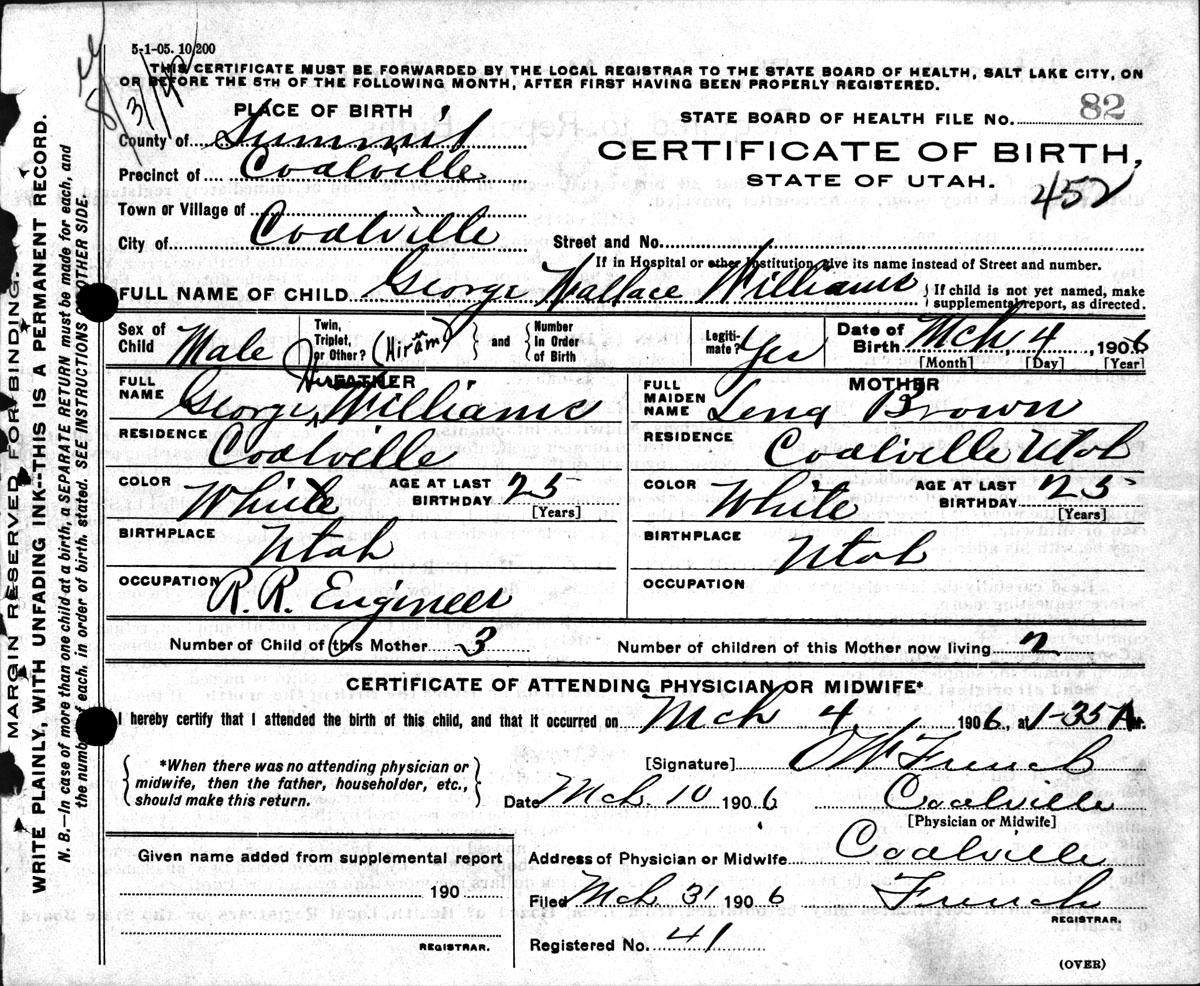 5-1-05. 10,200
THIS CERTIFICATE MUST BE FORWARDED BY THE LOCAL REGISTRAR TO THE STATE BOARD OF HEALTH, SALT LAKE CITY, ON
OR BEFORE THE 5TH OF THE FOLLOWING MONTH, AFTER FIRST HAVING BEEN PROPERLY REGISTERED.
8/31/42
PLACE OF BIRTH
STATE BOARD OF HEALTH FILE NO. 82
County of Summit
CERTIFICATE OF BIRTH,
Precinct of Coalville
STATE OF UTAH.
452
Town or Village of
City of Coalville Street and No.
If in Hospital or other Institution give its name instead of Street and number.
FULL NAME OF CHILD George Wallace Williams { If child is not yet named, make
supplemental report, as directed.
Sex of Child Male Twin, Triplet, or Other? (Hiram) } and { Number In Order of Birth Legiti-mate? Yes Date of Birth Mch 4, 1906
[Month] [Day] [Year]
FATHER MOTHER
FULL NAME George Hiram Williams FULL MAIDEN NAME Lena Brown
RESIDENCE Coalville RESIDENCE Coalville Utah
COLOR White AGE AT LAST BIRTHDAY 25 [Years] COLOR White AGE AT LAST BIRTHDAY 25 [Years]
BIRTHPLACE Utah BIRTHPLACE Utah
OCCUPATION R.R. Engineer OCCUPATION
Number of Child of this Mother 3 Number of children of this Mother now living 2
CERTIFICATE OF ATTENDING PHYSICIAN OR MIDWIFE*
I hereby certify that I attended the birth of this child, and that it occurred on Mch 4, 1906, at 1-35 A M.
{ *When there was no attending physician or
midwife, then the father, householder, etc.,
should make this return. }
[Signature] O W French
Date Mch. 10 1906 Coalville
[Physician or Midwife]
Given name added from supplemental report
Address of Physician or Midwife Coalville
190
Filed Mch 31 1906 French
REGISTRAR.
REGISTRAR.
Registered No. 41
(OVER)
MARGIN RESERVED FOR BINDING.
WRITE PLAINLY, WITH UNFADING INK--THIS IS A PERMANENT RECORD.
N. B.—In case of more than one child at a birth, a SEPARATE RETURN must be made for each, and
the number of each, in order of birth, stated. SEE INSTRUCTIONS ON OTHER SIDE.